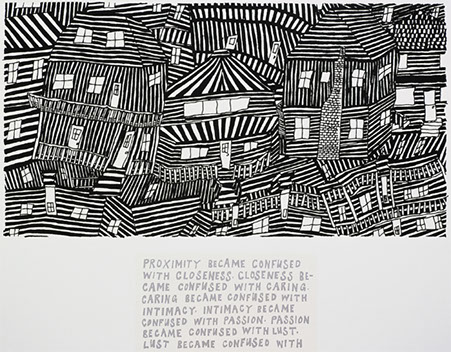 PROXIMITY BECAME CONFUSED
WITH CLOSENESS. CLOSENESS BE-
CAME CONFUSED WITH CARING.
CARING BECAME CONFUSED WITH
INTIMACY. INTIMACY BECAME
CONFUSED WITH PASSION. PASSION
BECAME CONFUSED WITH LUST.
LUST BECAME CONFUSED WITH